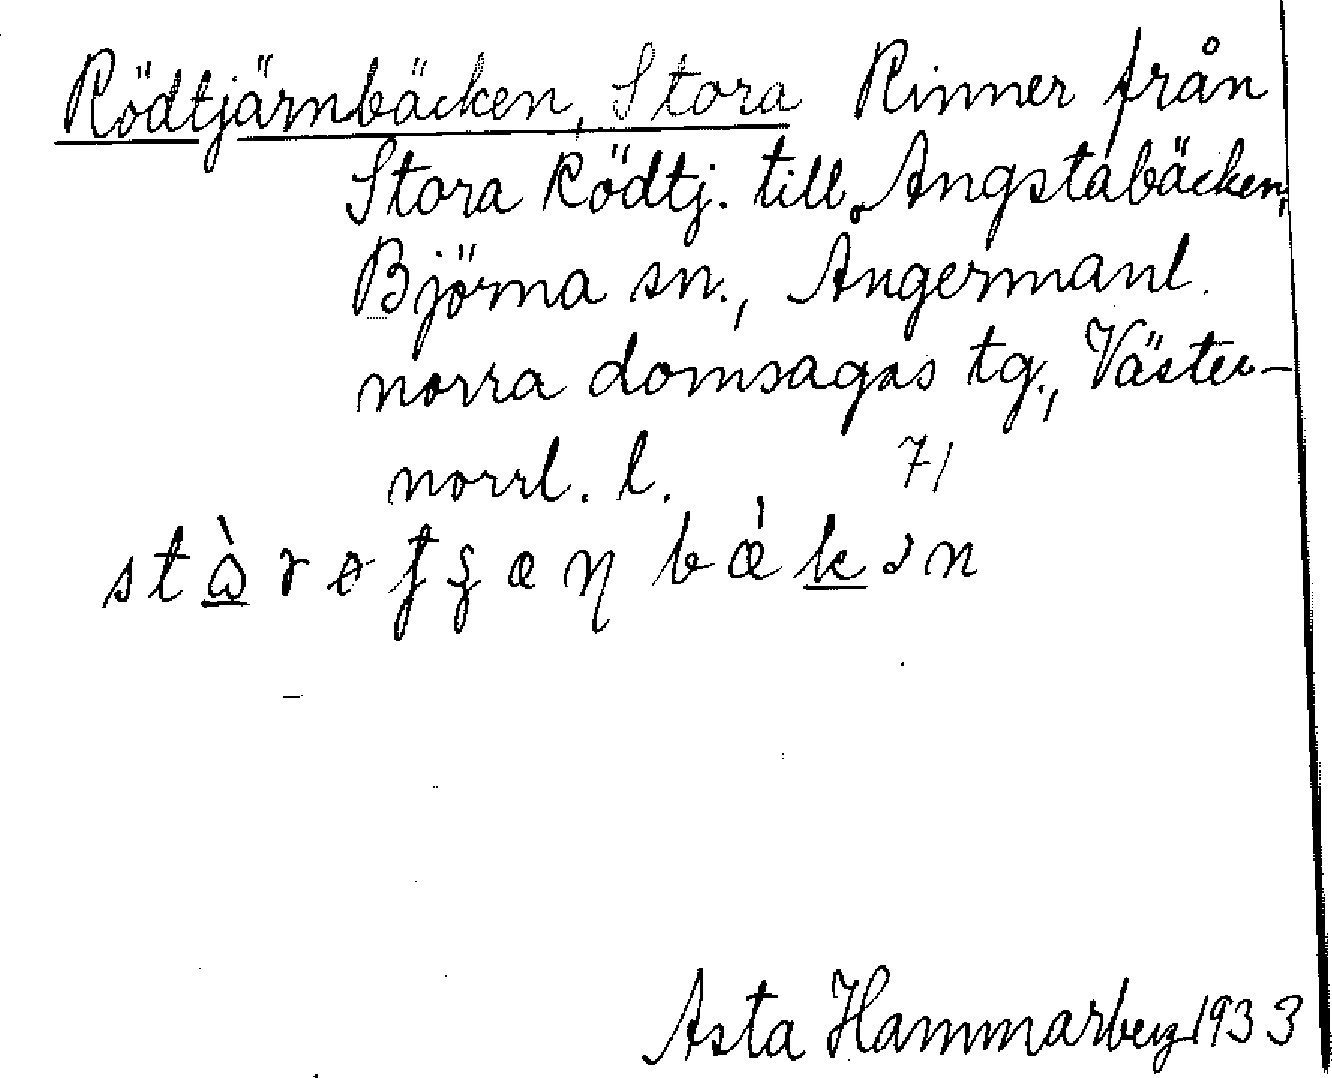 Rödtjärnbäcken, Stora Rinner från
Stora Rödtj. till Angstabäcken,
Björna sn., Ångermanl.
norra domsagas tg., Väster-
norrl. l. 71
Asta Hammarberg 1933